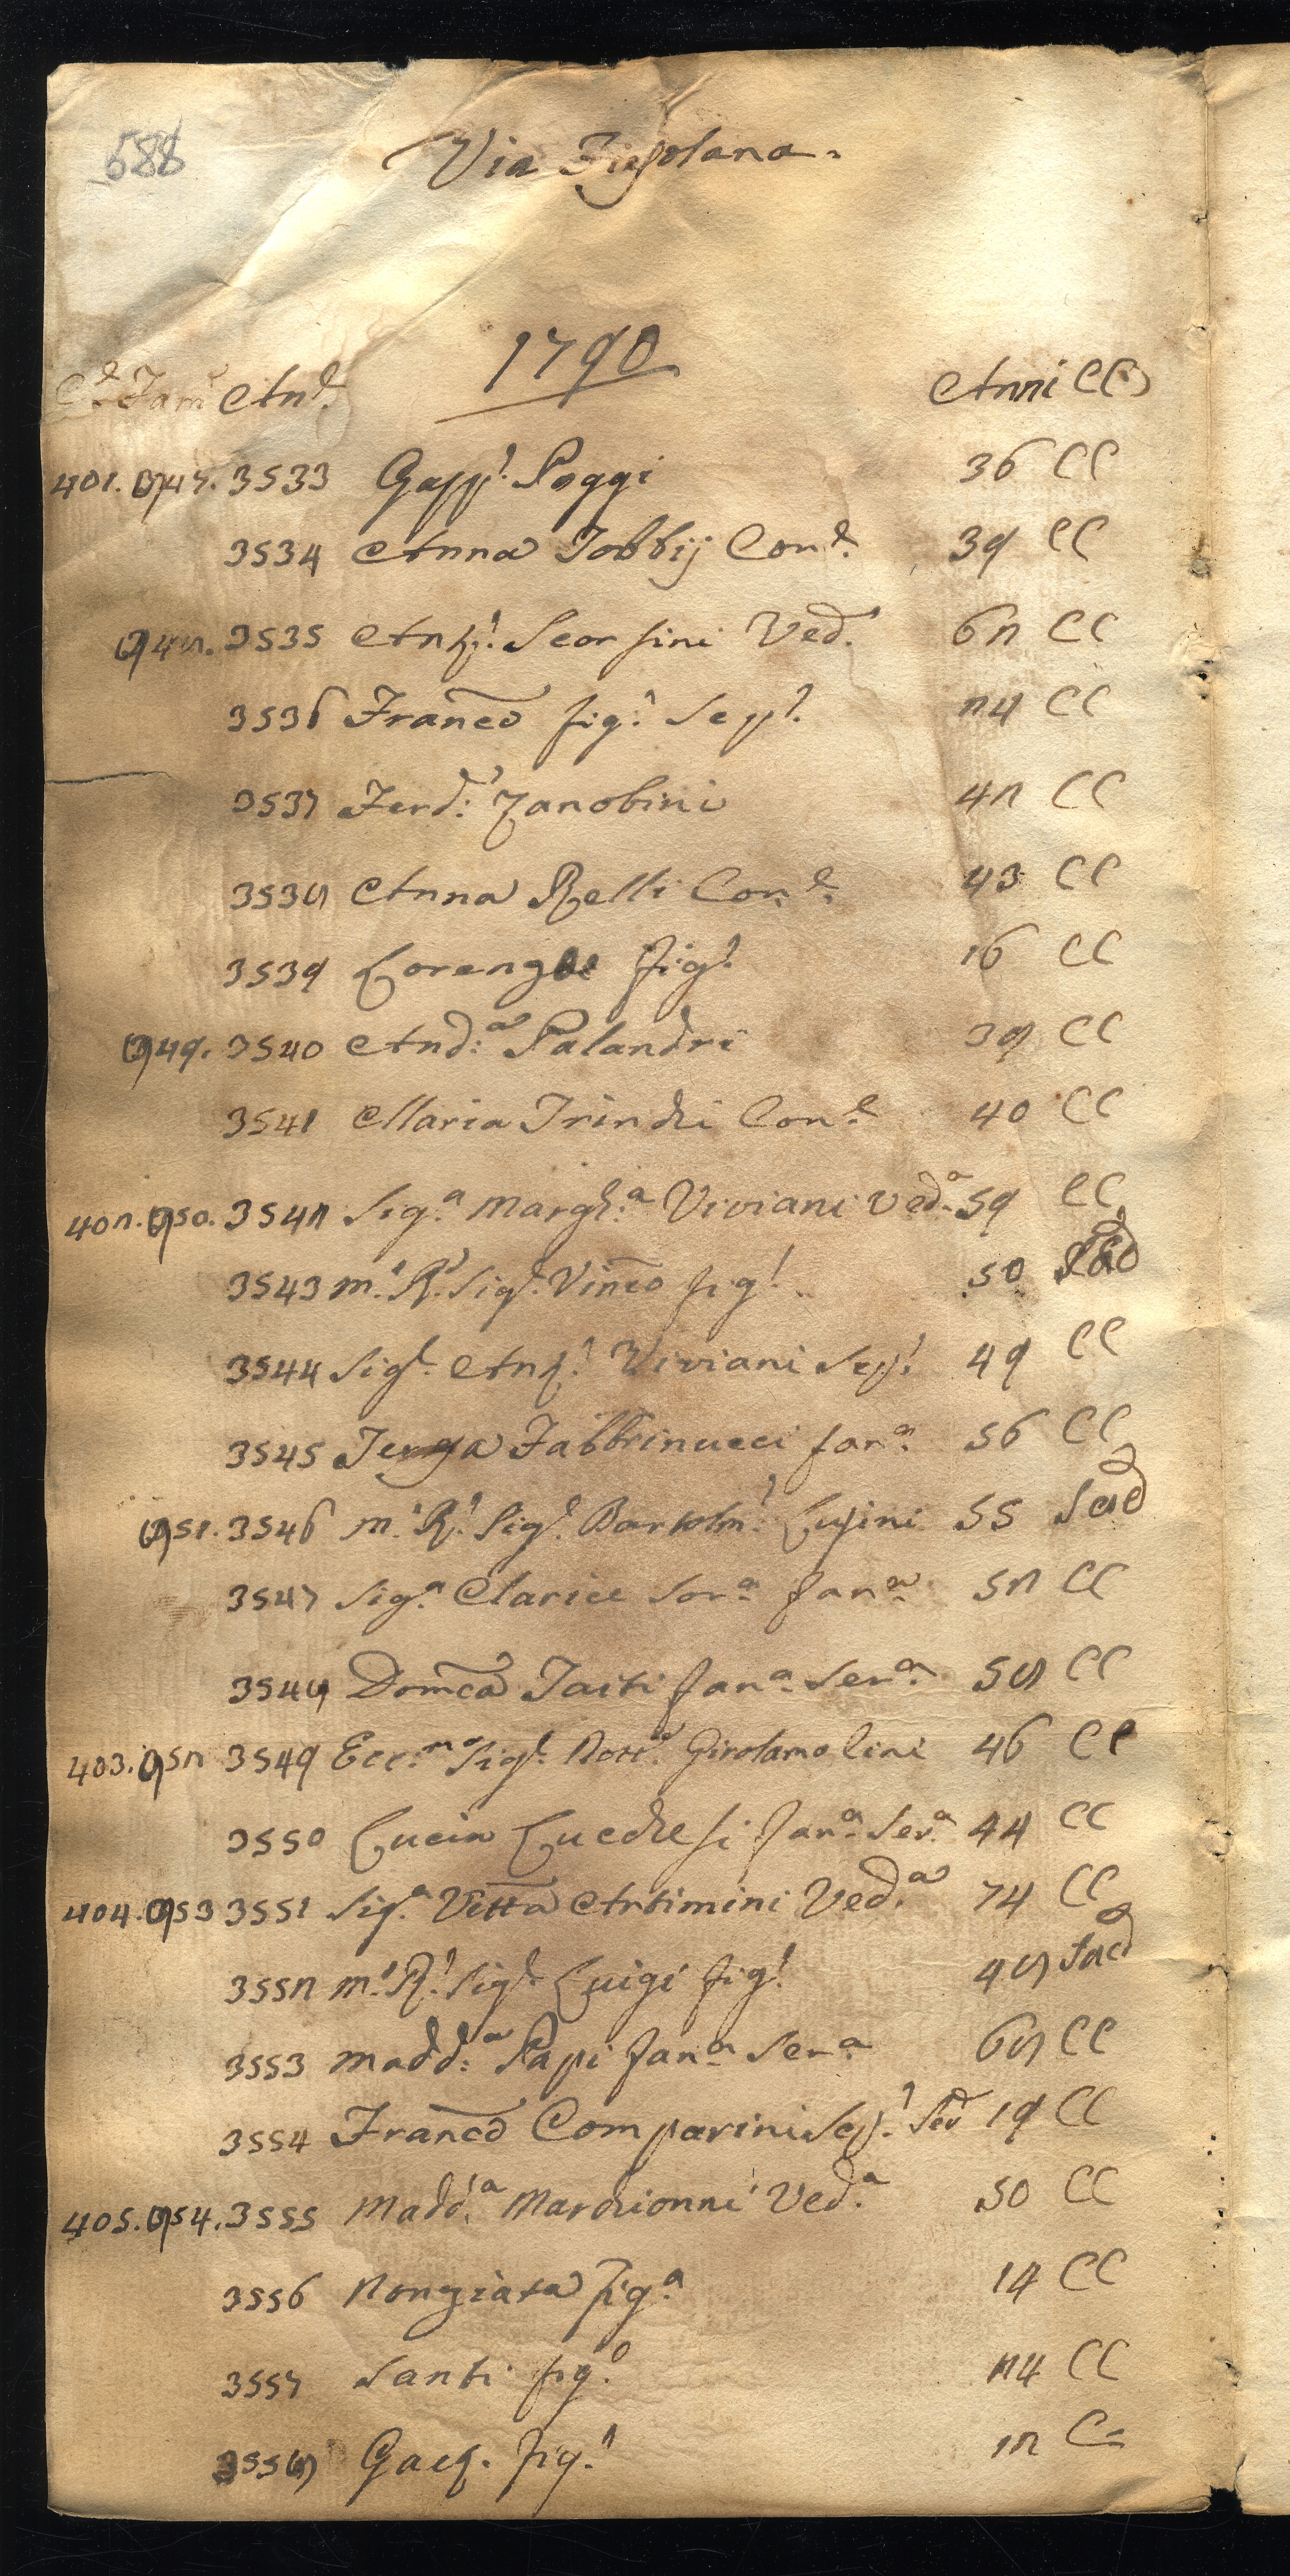 588
Via Fiesolana.
1790
C.e Fam. An.e Anni CC
401. 847. 3533 Gasp.e Poggi 36 CC
3534 Anna Jobbij Con.e 39 CC
848. 3535 Ang.a Scorsini Ved.a 62 CC
3536 Franco fig.o Sep.o 24 CC
3537 Ferd.o Zanobini 42 CC
3538 Anna Relli Con.e 43 CC
3539 Lorenzo fig.o 16 CC
849. 3540 And.a Palandri 39 CC
3541 Maria Trinchi Con.e 40 CC
402. 850. 3542 Sig.a Margh.a Viviani Ved.a 59 CC
3543 M.o R.o Sig.e Vinco fig.o 50 Sacd
3544 Sig.e Ang.o Viviani Sep.o 49 CC
3545 Fabbrinucci fan.a 56 CC
851. 3546 M.o R.o Sig.e Bartolm.o Lupini 55 Sacd
3547 Sig.a Clarice Sor.a fan.a 52 CC
3548 Domca Taiti fan.a Ser.a 58 CC
403. 852 3549 Ecc.mo Sig.e Dott.e Girolamo Lini 46 CC
3550 Lucia Lucchesi fan.a Ser.a 44 CC
404. 853 3551 Sig.a Vetta Artimini Ved.a 74 CC
3552 M.o R.o Sig.e Luigi fig.o 48 Sacd
3553 Madd.a Papi fan.a Ser.a 68 CC
3554 Franco Comparini Sep.o Ser 19 CC
405. 854. 3555 Madd.a Marchionni Ved.a 50 CC
3556 Nonziata fig.a 14 CC
3557 Santi fig.o 24 CC
3558 Gaet. fig.o 12 C=